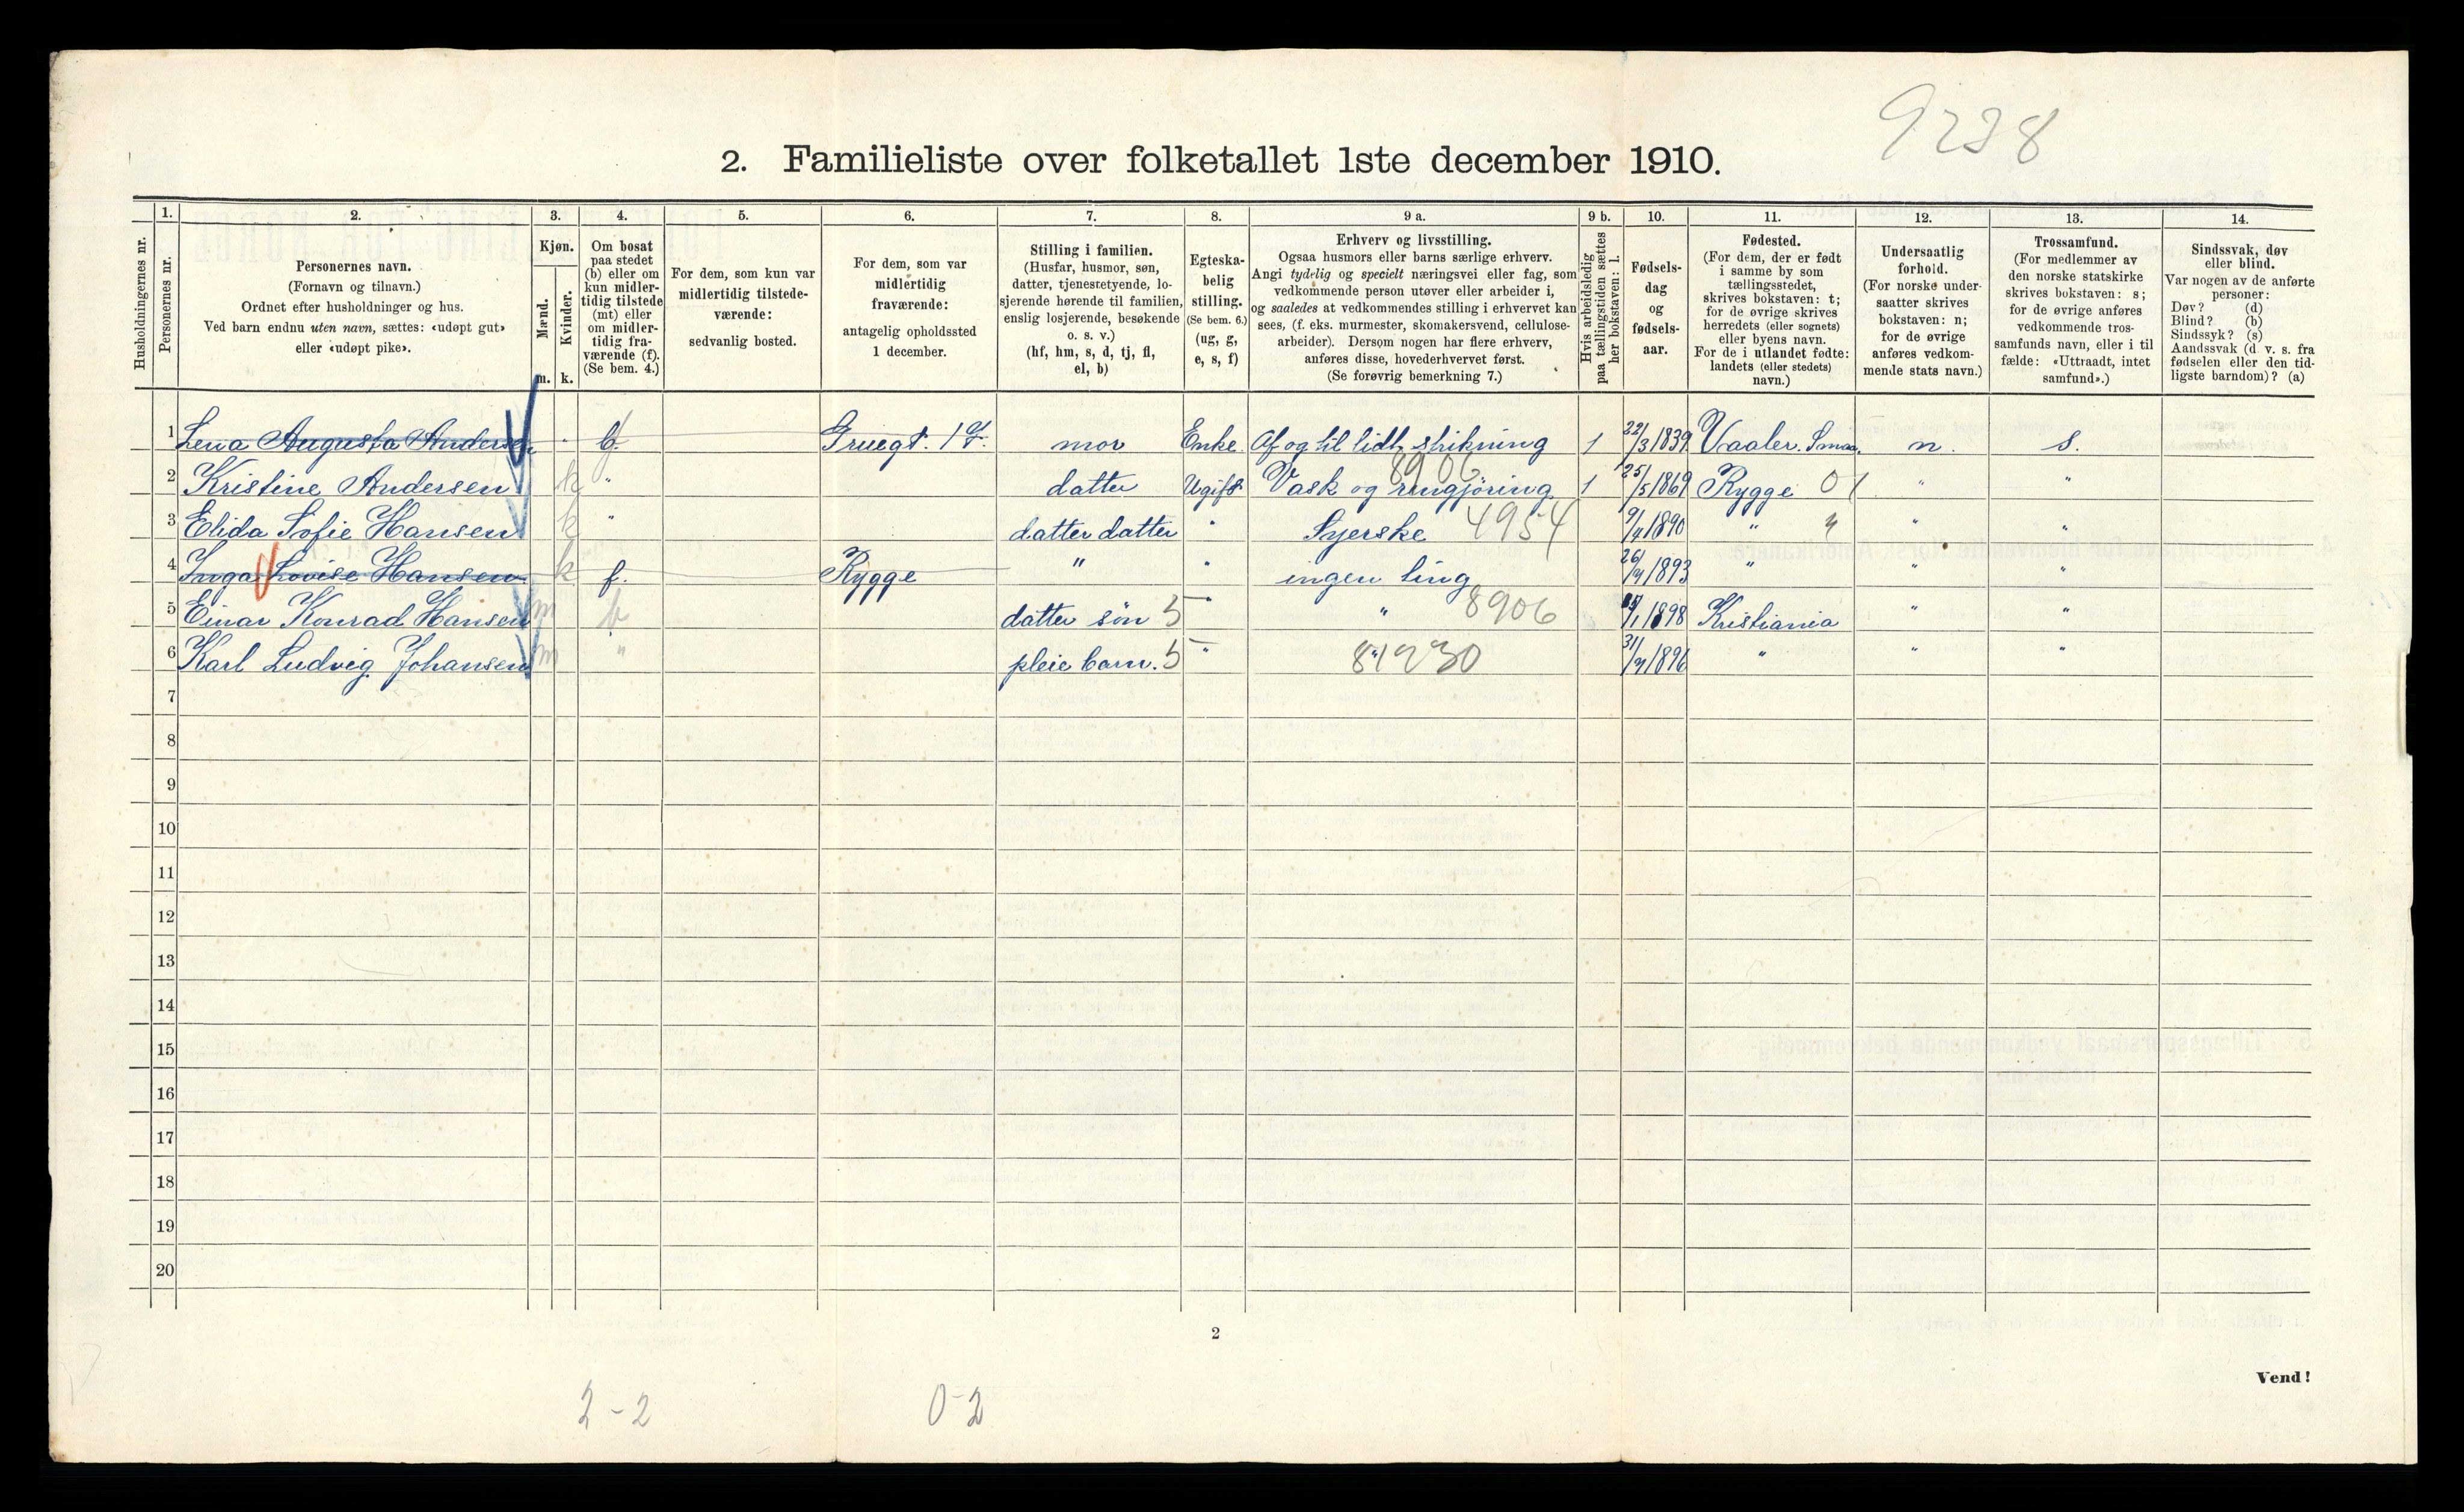 9238
2. Familieliste over folketallet 1ste december 1910.
1. 2. 3. 4. 5. 6. 7. 8. 9 a. 9 b. 10. 11. 12. 13. 14.
Husholdningernes nr.
Personernes nr.
Personernes navn.
(Fornavn og tilnavn.)
Ordnet efter husholdninger og hus.
Ved barn endnu uten navn, sættes: «udøpt gut»
eller «udøpt pike».
Kjøn.
Mænd.
Kvinder.
m. k.
Om bosat
paa stedet
(b) eller om
kun midler-
tidig tilstede
(mt) eller
om midler-
tidig fra-
værende (f).
(Se bem. 4.)
For dem, som kun var
midlertidig tilstede-
værende:
sedvanlig bosted.
For dem, som var
midlertidig
fraværende:
antagelig opholdssted
1 december.
Stilling i familien.
(Husfar, husmor, søn,
datter, tjenestetyende, lo-
sjerende hørende til familien,
enslig losjerende, besøkende
o. s. v.)
(hf, hm, s, d, tj, fl,
el, b)
Egteska-
belig
stilling.
(Se bem. 6.)
(ug, g,
e, s, f)
Erhverv og livsstilling.
Ogsaa husmors eller barns særlige erhverv.
Angi tydelig og specielt næringsvei eller fag, som
vedkommende person utøver eller arbeider i,
og saaledes at vedkommendes stilling i erhvervet kan
sees, (f. eks. murmester, skomakersvend, cellulose-
arbeider). Dersom nogen har flere erhverv,
anføres disse, hovederhvervet først.
(Se forøvrig bemerkning 7.)
Hvis arbeidsledig
paa tællingstiden sættes
her bokstaven: l.
Fødsels-
dag
og
fødsels-
aar.
Fødested.
(For dem, der er født
i samme by som
tællingsstedet,
skrives bokstaven: t;
for de øvrige skrives
herredets (eller sognets)
eller byens navn.
For de i utlandet fødte:
landets (eller stedets)
navn.)
Undersaatlig
forhold.
(For norske under-
saatter skrives
bokstaven: n;
for de øvrige
anføres vedkom-
mende stats navn.)
Trossamfund.
(For medlemmer av
den norske statskirke
skrives bokstaven: s;
for de øvrige anføres
vedkommende tros-
samfunds navn, eller i til
fælde: «Uttraadt, intet
samfund».)
Sindssvak, døv
eller blind.
Var nogen av de anførte
personer:
Døv? (d)
Blind? (b)
Sindssyk? (s)
Aandssvak (d. v. s. fra
fødselen eller den tid-
ligste barndom)? (a)
1 Lena Augusta Andersen " b mor Enke Af og til lidt strikning 1 22/3 1839 Vaaler. Smaa. n. s.
2 Kristine Andersen k " datter Ugift Vask og rengjöring 8906 1 25/5 1869 Rygge 01 " "
3 Elida Sofie Hansen k " datter datter " Syerske 4954 1890 " " " "
4 Inga Lovise Hansen k f. Rygge " " ingen ting 1893 " " "
5 Einar Konrad Hansen m b datter sön 5 " " 8906 1898 Kristiania " "
6 Karl Ludvig Johansen m " pleie barn. 5 " " 81230 1896 " " "
7
8
9
10
11
12
13
14
15
16
17
18
19
20
2
Vend!
2-2 0-2